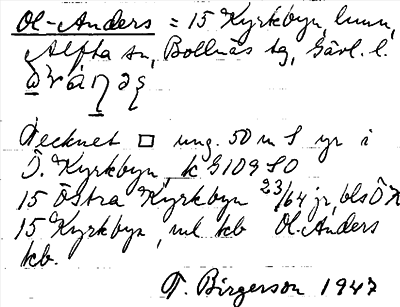 Ol-Anders = 15 Kyrkbyn, hmn,
Alfta sn, Bollnäs tg, Gävl. l.
Tecknet □ ung. 50 m S yr i
Ö. Kyrkbyn, k G109 SO
15 Östra Kyrkbyn 23/64 jr, bls Ö K
15 Kyrkbyn, ml kb Ol-Anders
kb.
T. Birgerson 1947